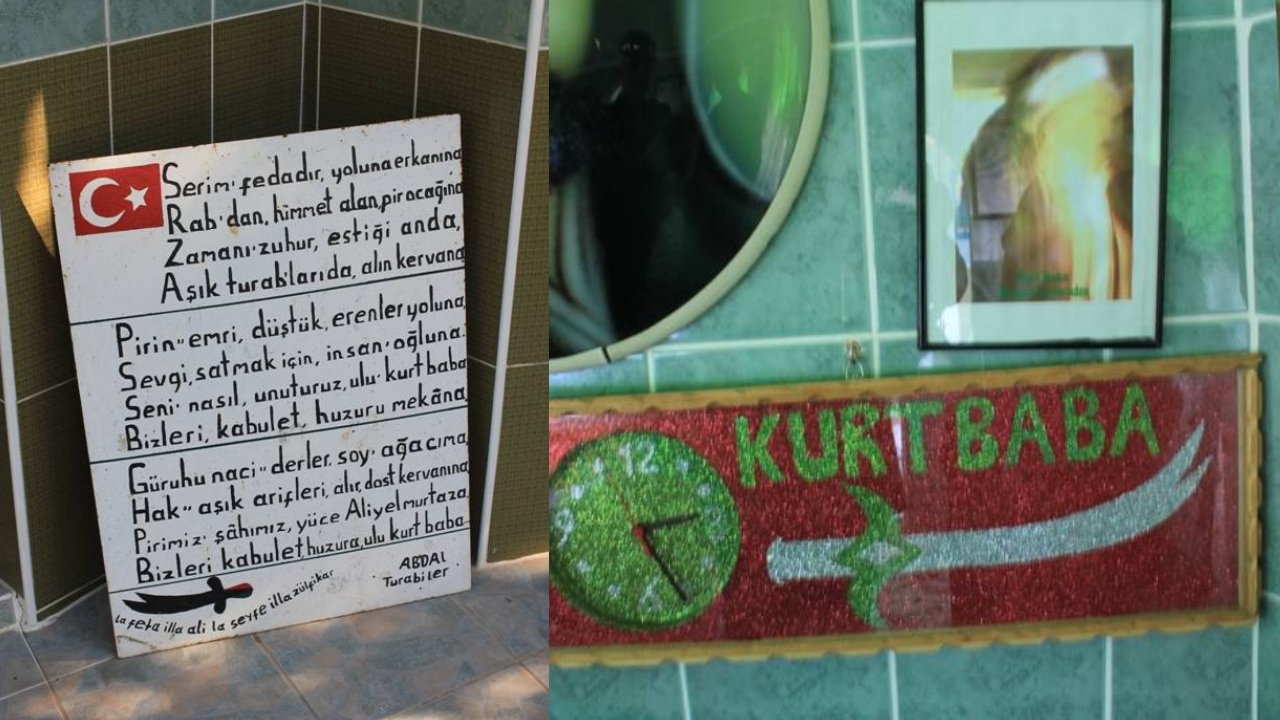 Serim· fedadır, yoluna erkanına
Rab·dan, himmet alan, pir ocağına
Zamanı·zuhur, estiği anda,
Aşık turabılarıda, alın kervana
Pirin·· emri, düştük, erenler yoluna,
Sevgi, satmak için, insan·oğluna.
Seni· nasıl, unuturuz, ulu· kurt baba
Bizleri, kabulet, huzuru mekâna,
Güruhu naci·· derler, soy· ağacıma,
Hak·· aşık arifleri, alır, dost kervanına,
Pirimiz· şâhımız, yüce Aliyel murtaza,
Bizleri kabulet, huzura, ulu kurt baba.
ABDAL
Turabiler
La feta illa ali la seyfe illa zülpikar
KURT BABA
12